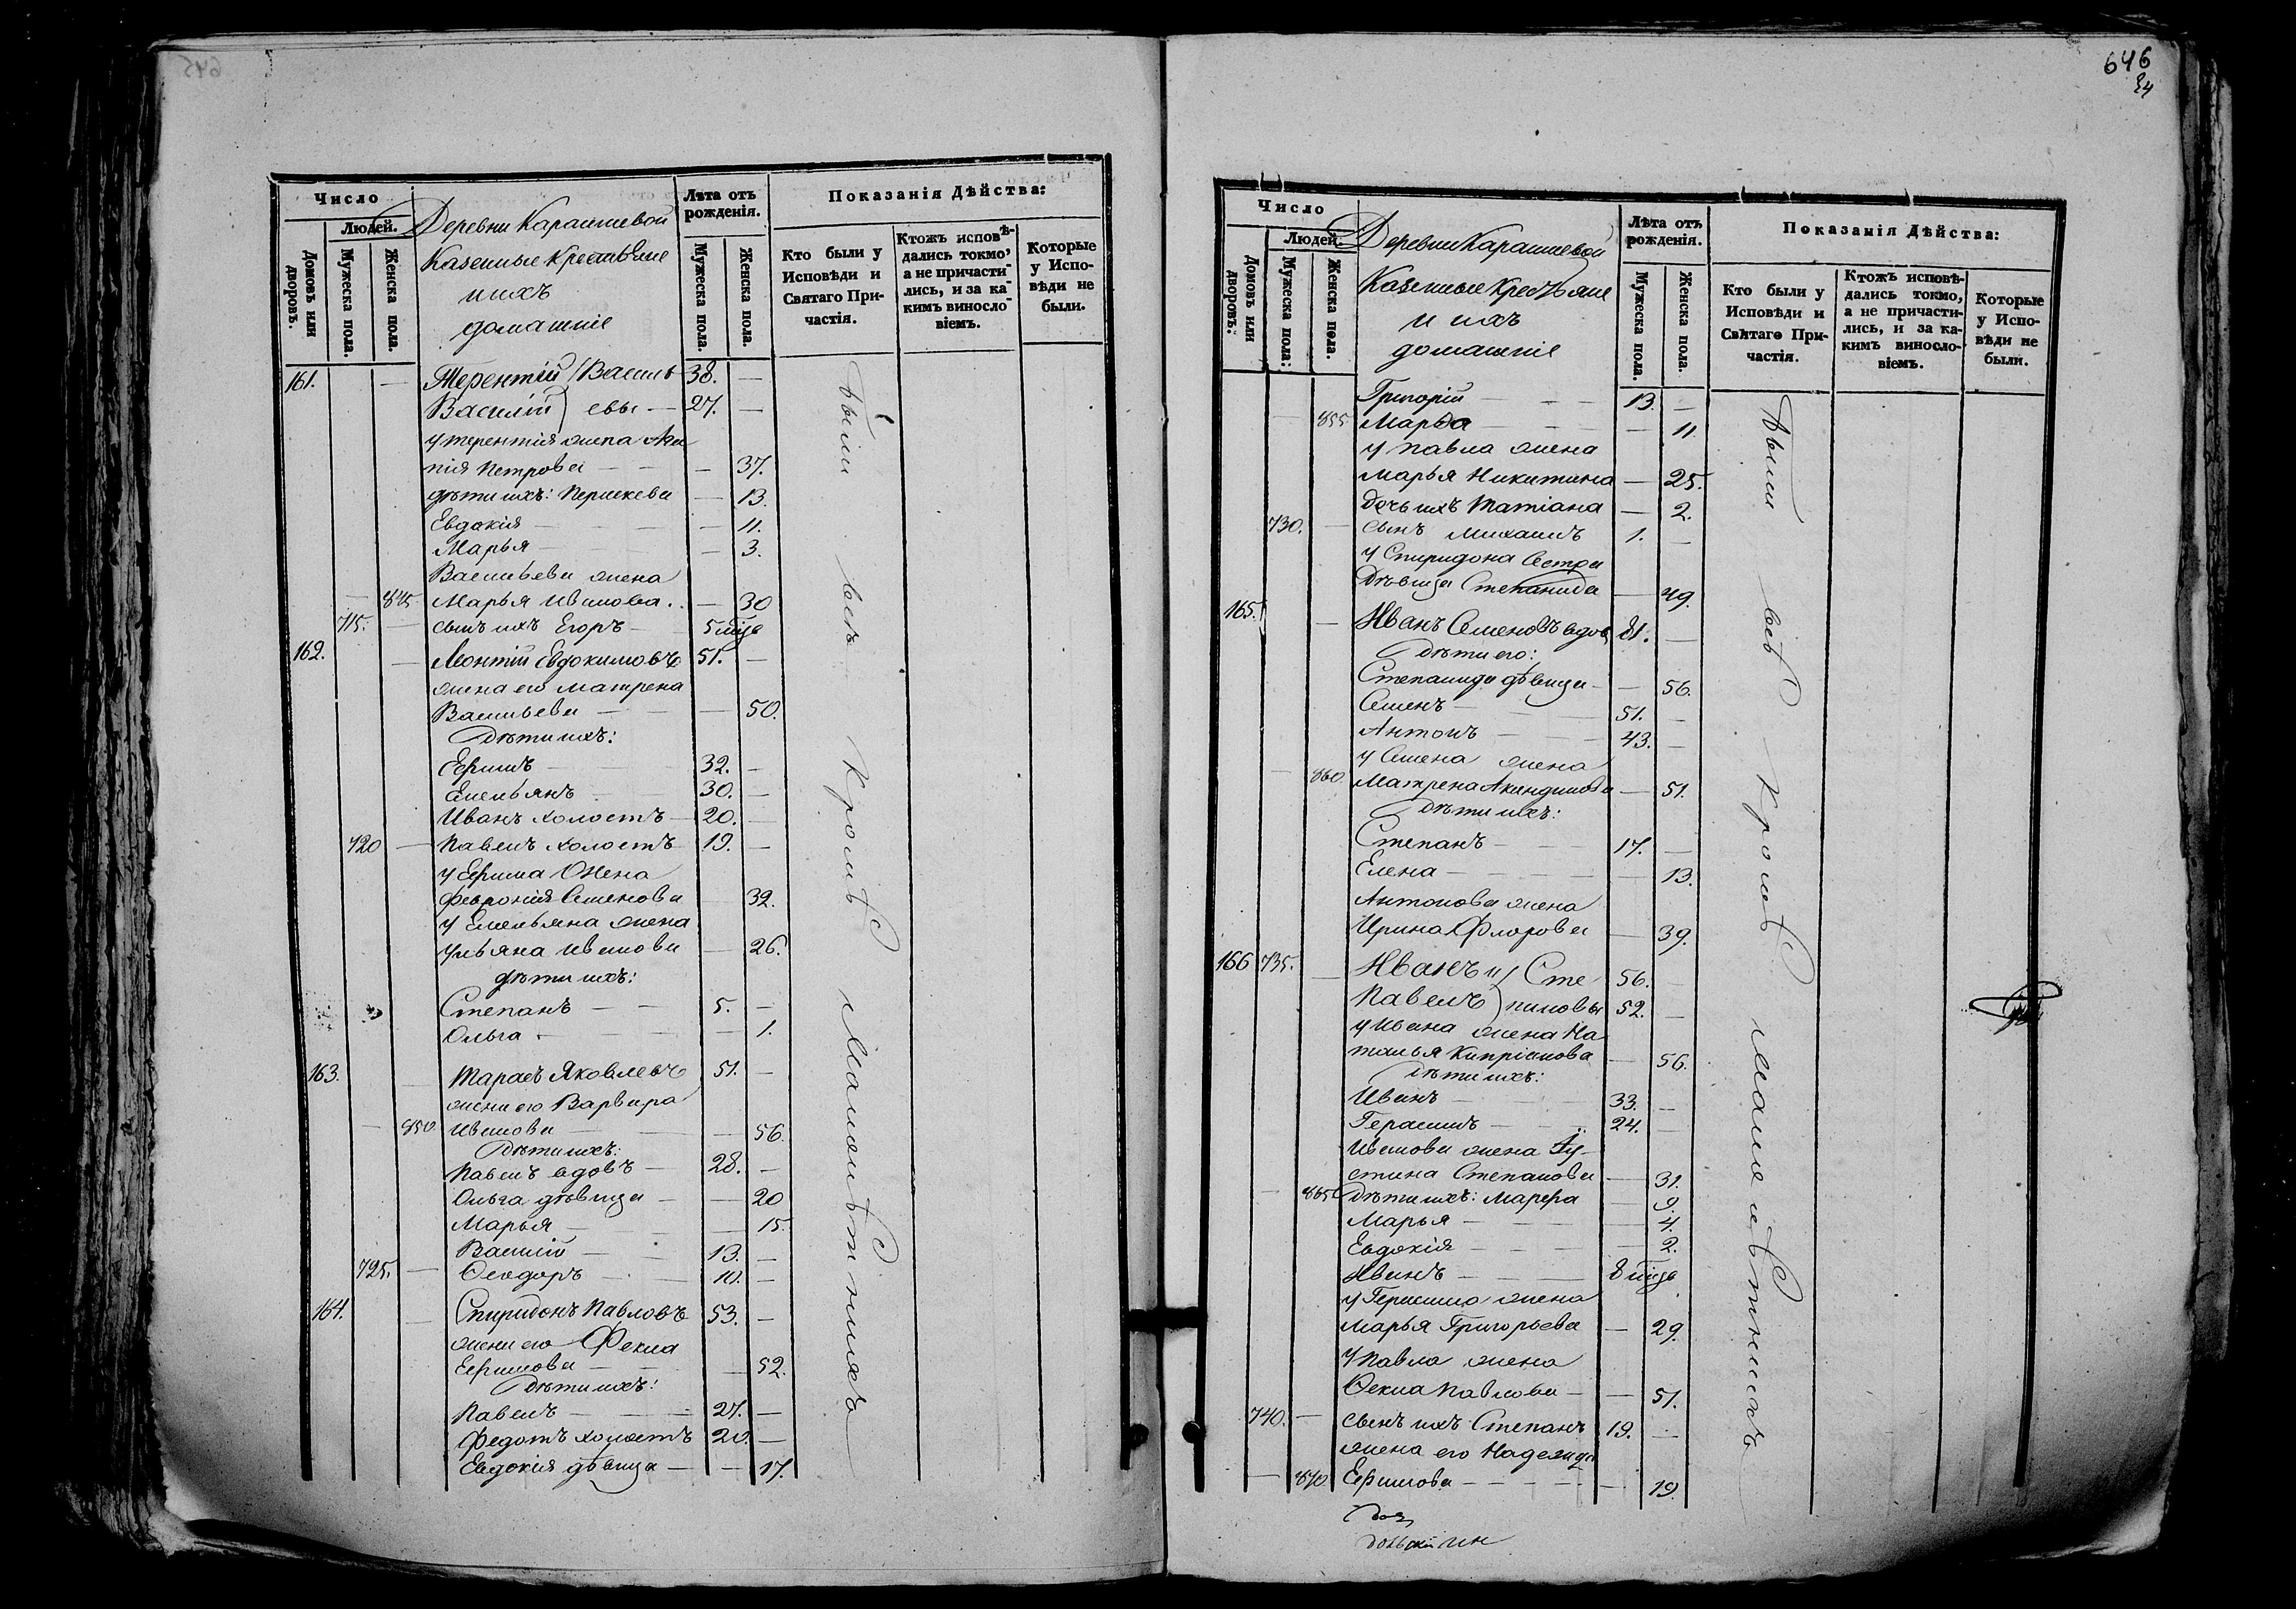 646
84
Число
Людей.
Домовъ или дворовъ.
Мужеска пола.
Женска пола.
Деревни Карашиевой
Казенные Крестьяне
и ихъ
домашніе
Лѣта отъ рожденія.
Мужеска пола.
Женска пола.
Показанія Дѣйства:
Кто были у Исповѣди и Святаго Причастія.
Ктожъ исповѣдались токмо, а не причастились, и за какимъ винословіемъ.
Которые у Исповѣди не были.
161. — Терентій / Василь 38. —
Василій ) евы — 27. —
у терентія жена Ага
пія Петрова — — 37.
дѣти ихъ: Пераскева — 13.
Евдокія — — 11.
Марья — — 3.
Васильева жена
— 845 Марья Иванова . . — 30
715. — сынъ ихъ Егоръ — 5 мцв
162. — Леонтій Евдокимовъ 51. —
жена его Матрена
Васильева — — 50.
Дѣти ихъ:
Ефимъ — 32. —
Емельянъ 30. —
Иванъ холостъ — 20. —
720 — Павелъ холостъ 19. —
у Ефима Жена
Феврония Семенова 32.
у Емельяна жена
Ульяна Иванова — 26.
дѣти ихъ:
Степанъ — — 5. —
Ольга — — 1.
163. — Тарасъ Яковлевъ 51. —
жена его Варвара
— 850 Иванова — — 56.
Дѣти ихъ:
Павелъ вдовъ — 28. —
Ольга дѣвица — — 20
Марья — — 15.
Василій — — 13. —
725. — Ѳеодоръ — — 10. —
164. — Спиридонъ Павловъ 53. —
жена его Фекла
Ефимова — — 52.
Дѣти ихъ:
Павелъ — — 27. —
Федотъ холостъ 20. —
Евдокія дѣвица — — 17.
были всѣ Кромѣ малолѣтнихъ
Число
Людей.
Домовъ или дворовъ.
Мужеска пола.
Женска пола.
Деревни Карашиевой
Казенные Крестьяне
и ихъ
домашніе
Лѣта отъ рожденія.
Мужеска пола.
Женска пола.
Показанія Дѣйства:
Кто были у Исповѣди и Святаго Причастія.
Ктожъ исповѣдались токмо, а не причастились, и за какимъ винословіемъ.
Которые у Исповѣди не были.
Григорій — — — 13. —
— 855 Марѳа — — — 11.
у Павла жена
Марья Никитина — 25.
Дочь ихъ Татіана — 2.
730. — сынъ Михаилъ 1. —
у Спиридона Сестра
Дѣвица Степанида — 49.
165. — Иванъ Семеновъ вдов 81. —
Дѣти его:
Степанида дѣвица — — 56.
Семенъ — 51. —
Антонъ — 43. —
у Семена жена
— 860 Матрена Акиндинова — 51.
Дѣти ихъ:
Степанъ — — 17. —
Елена — — — 13.
Антонова жена
Ирина Флорова — 39.
166 735. — Иванъ и / Сте 56. —
Павелъ ) пановы 52. —
у Ивана жена На
талья Кипріанова — 56.
Дѣти ихъ:
Иванъ — — 33. —
Герасимъ — — 24. —
Иванова жена Іу-
стина Степанова — 31.
— 865 Дѣти ихъ: Марѳа — 9.
Марья — — — 4.
Евдокія — — — 2.
Иванъ — — 8 мцв
у Герасима жена
Марья Григорьева — 29.
у Павла жена
Ѳекла Павлова — — 51.
740. — сынъ ихъ Степанъ 19. —
жена его Надежда
— 870 Ефимова — — — 19.
были всѣ Кромѣ малолѣтнихъ